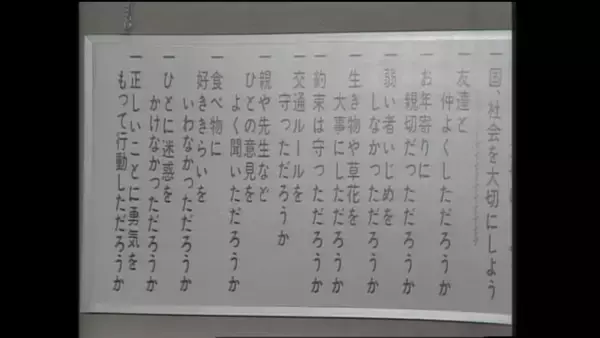 一国、社会を大切にしよう
一友達と
仲よくしただろうか
一お年寄りに
親切だっただろうか
一弱い者いじめを
しなかっただろうか
一生き物や草花を
大事にしただろうか
一約束は守っただろうか
一交通ルールを
守っただろうか
一親や先生など
ひとの意見を
よく聞いただろうか
一食べ物に
好ききらいを
いわなかっただろうか
一ひとに迷惑を
かけなかっただろうか
一正しいことに勇気を
もって行動しただろうか